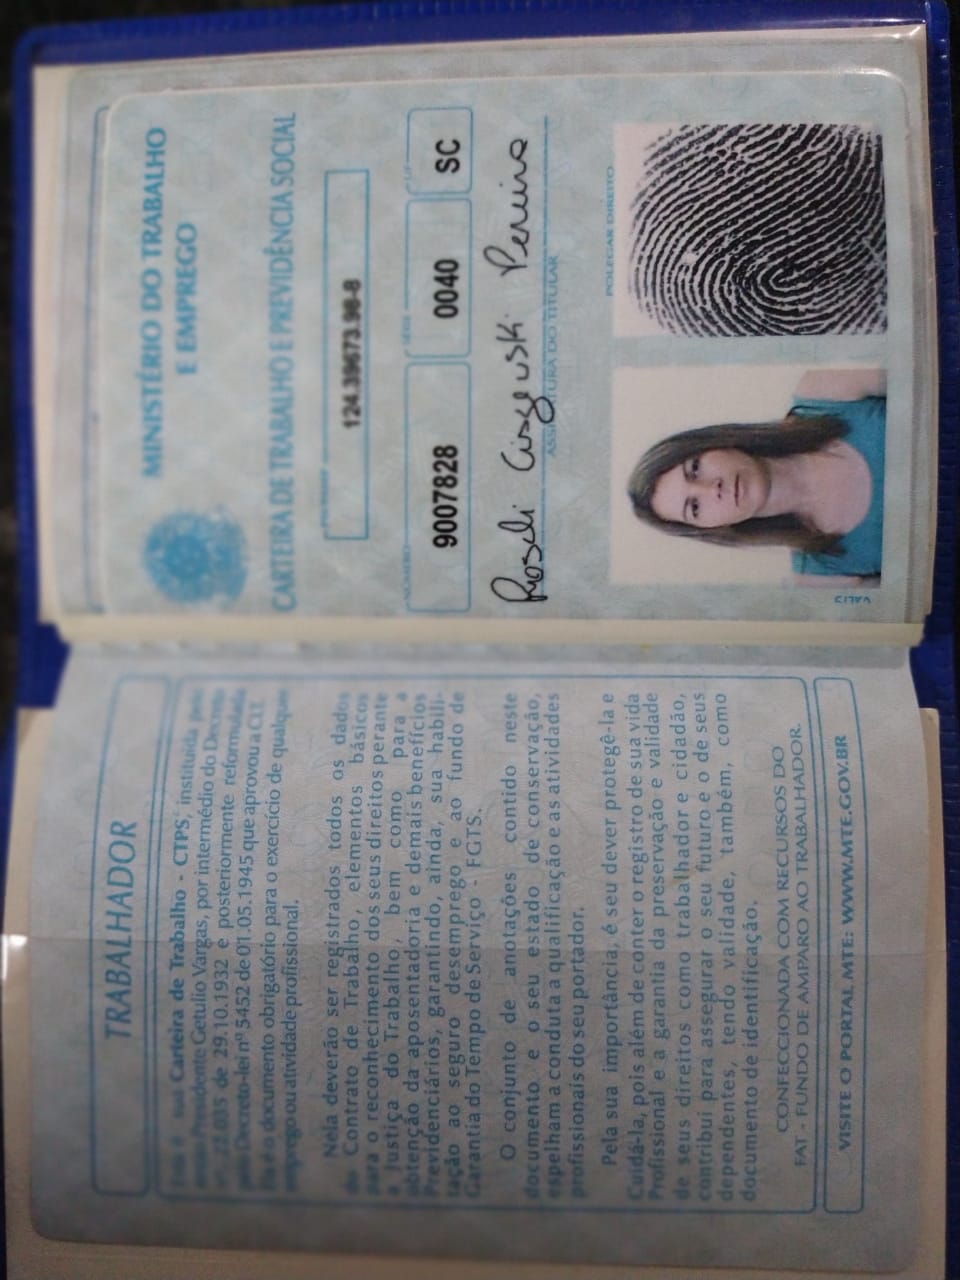 TRABALHADOR
Esta é sua Carteira de Trabalho - CTPS, instituída pelo
então Presidente Getulio Vargas, por intermédio do Decreto
nº 22.035 de 29.10.1932 e posteriormente reformulada
pelo Decreto-lei nº 5452 de 01.05.1945 que aprovou a CLT.
Ela é o documento obrigatório para o exercício de qualquer
emprego ou atividade profissional.
Nela deverão ser registrados todos os dados
do Contrato de Trabalho, elementos básicos
para o reconhecimento dos seus direitos perante
a Justiça do Trabalho, bem como para a
obtenção da aposentadoria e demais benefícios
Previdenciários, garantindo, ainda, sua habili-
tação ao seguro desemprego e ao fundo de
Garantia do Tempo de Serviço - FGTS.
O conjunto de anotações contido neste
documento e o seu estado de conservação,
espelham a conduta a qualificação e as atividades
profissionais do seu portador.
Pela sua importância, é seu dever protegê-la e
Cuidá-la, pois além de conter o registro de sua vida
Profissional e a garantia da preservação e validade
de seus direitos como trabalhador e cidadão,
contribui para assegurar o seu futuro e o de seus
dependentes, tendo validade, também, como
documento de identificação.
CONFECCIONADA COM RECURSOS DO
FAT - FUNDO DE AMPARO AO TRABALHADOR.
VISITE O PORTAL MTE: WWW.MTE.GOV.BR
MINISTÉRIO DO TRABALHO
E EMPREGO
CARTEIRA DE TRABALHO E PREVIDÊNCIA SOCIAL
124.39673.98-8
NÚMERO SÉRIE UF
9007828 0040 SC
Roseli Ciszewski Pereira
ASSINATURA DO TITULAR
POLEGAR DIREITO